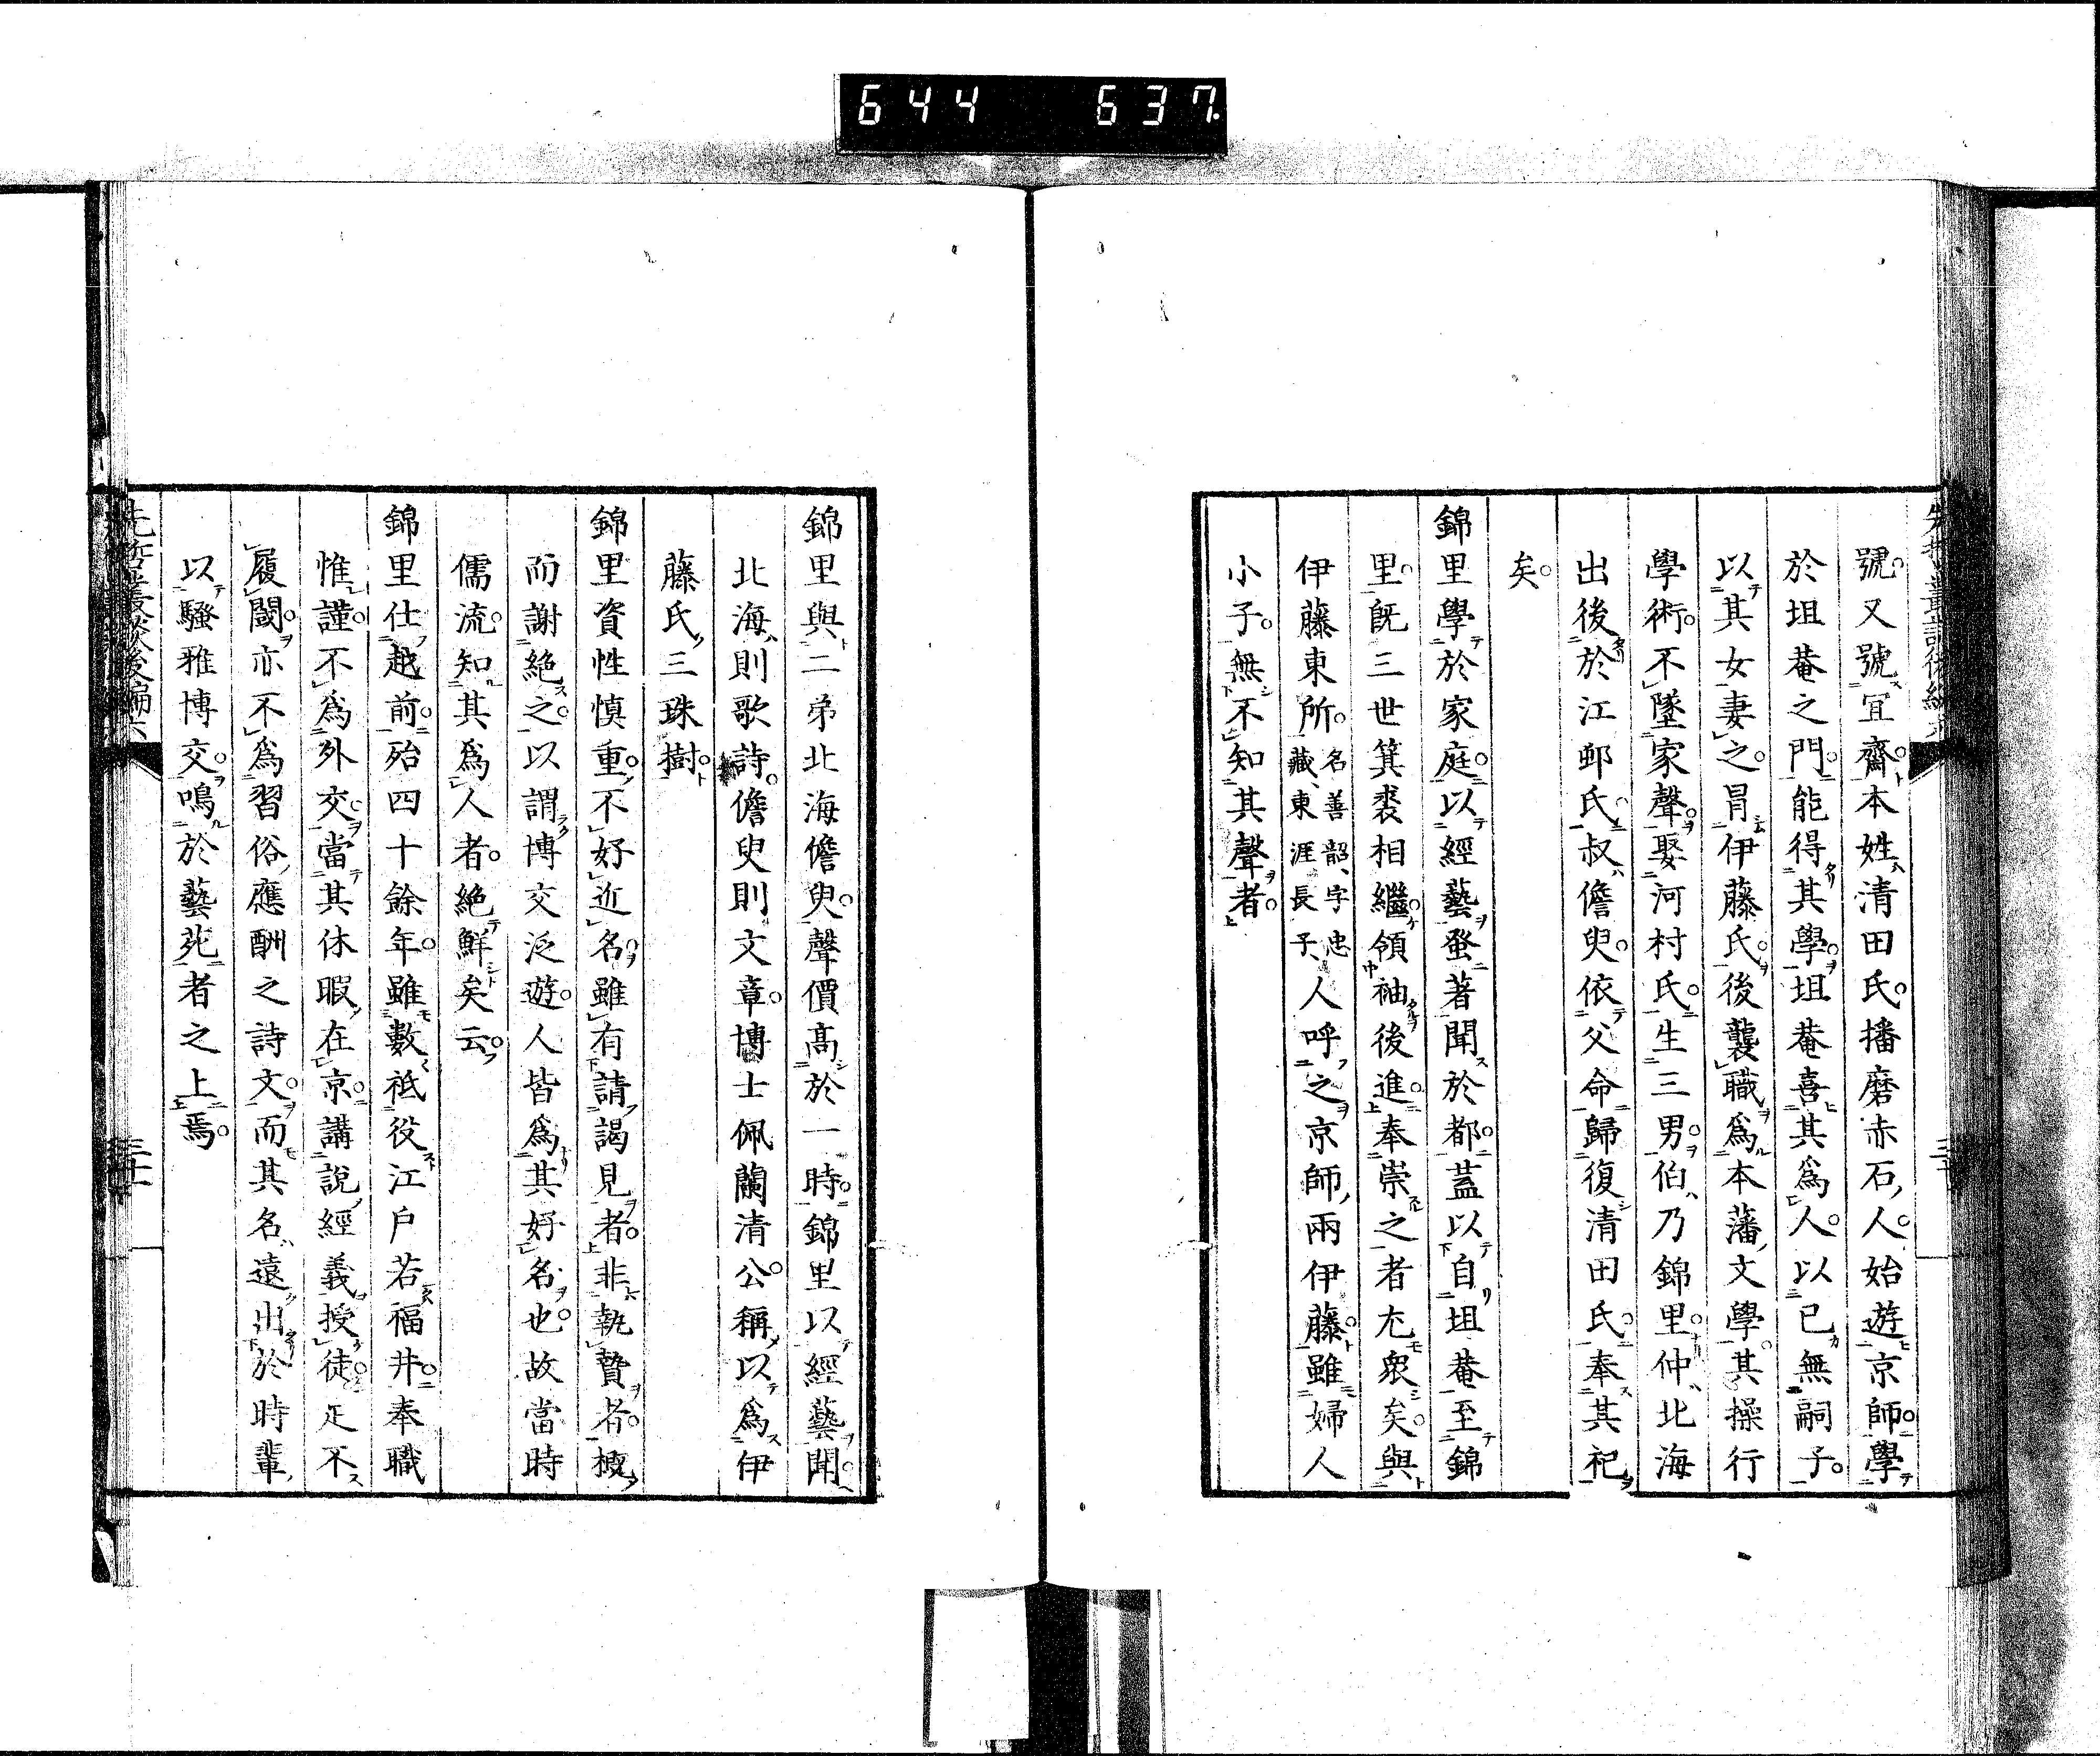 644 637.
號又號宜齋本姓清田氏播磨赤石人始遊京師學
於坦菴之門能得其學坦菴喜其爲人以已無嗣子
以其女妻之冐伊藤氏後襲職爲本藩文學其操行
學術不墜家聲娶河村氏生三男伯乃錦里仲北海
出後於江邨氏叔儋叟依父命歸復清田氏奉其祀
矣
錦里學於家庭以經藝發著聞於都蓋以自坦菴至錦
里既三世箕裘相繼領袖後進奉崇之者尤衆矣與
伊藤東所名善韶、字忠藏、東涯長子、人呼之京師兩伊藤雖婦人
小子無不知其聲者
錦里與二弟北海儋叟聲價高於一時錦里以經藝聞
北海則歌詩儋叟則文章博士佩蘭清公稱以爲伊
藤氏三珠樹
錦里資性慎重不好近名雖有請謁見者非執贄者極
而謝絕之以謂博交泛遊人皆爲其好名也故當時
儒流知其爲人者絕鮮矣云
錦里仕越前殆四十餘年雖數祗役江戶若福井奉職
惟謹不爲外交當其休暇在京講說經義授徒足不
履閾亦不爲習俗應酬之詩文而其名遠出於時輩
以騷雅博交鳴於藝苑者之上焉
先哲叢談後編六